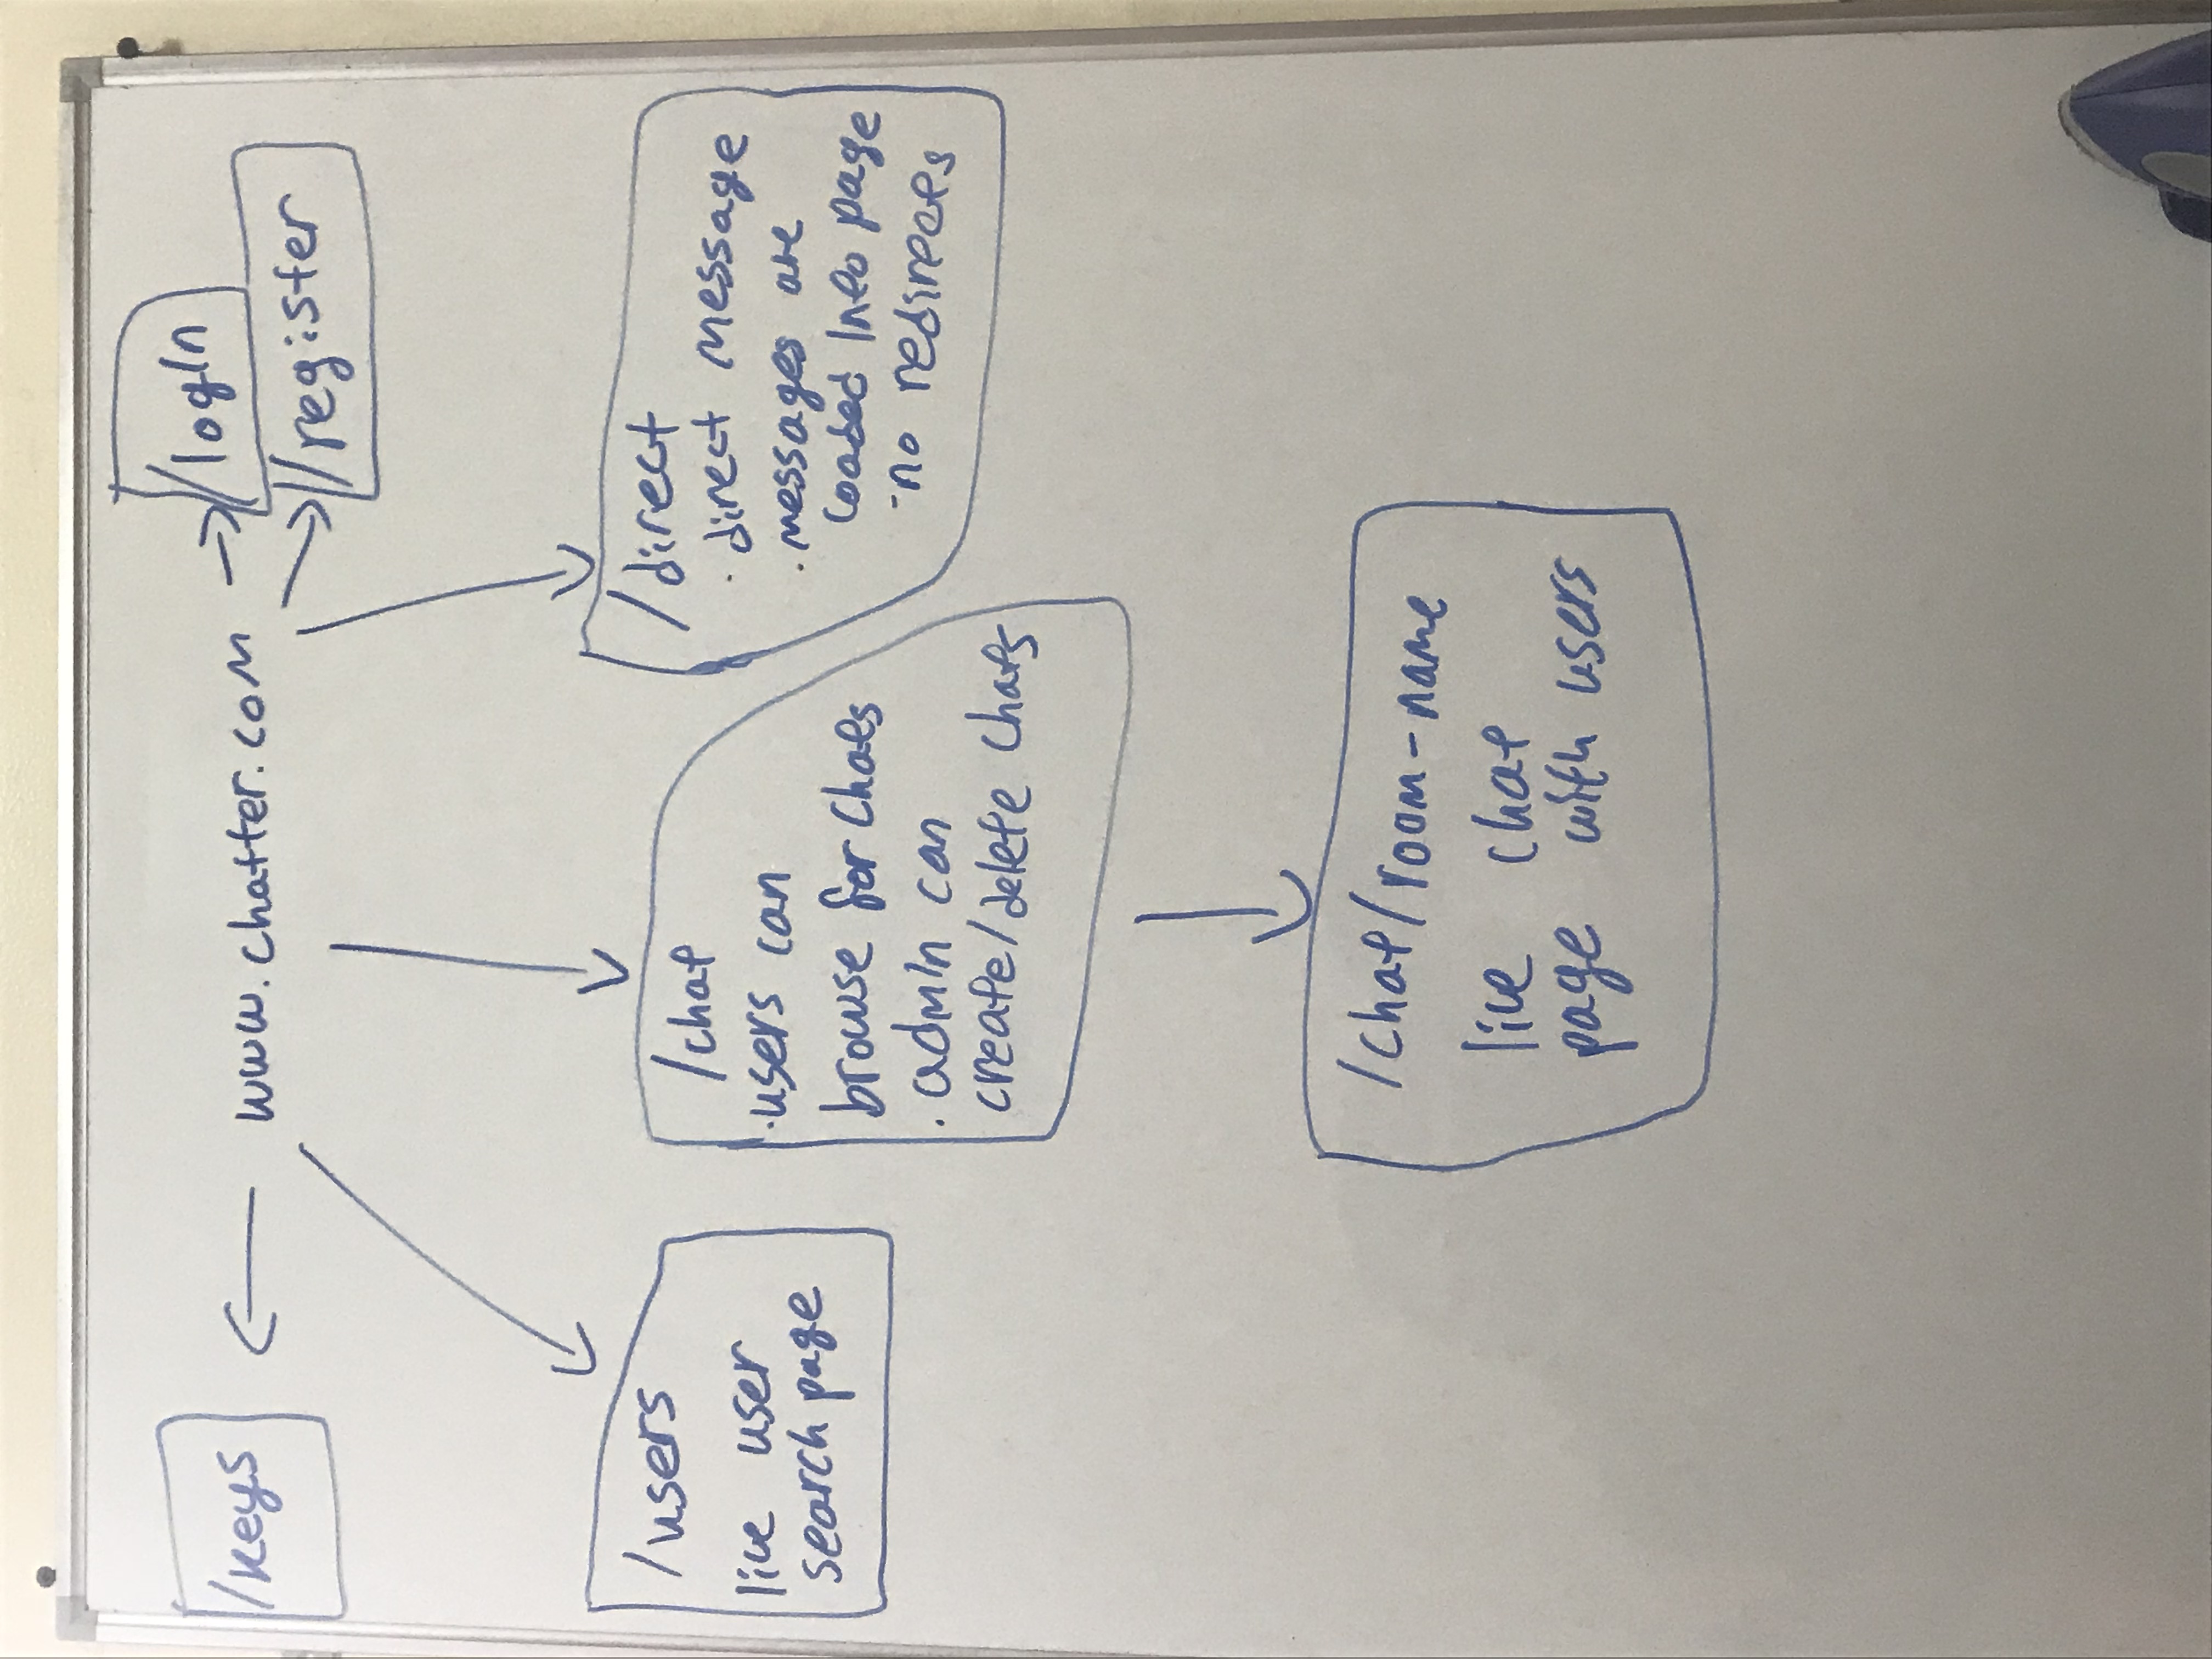 /login
/keys
www.chatter.com
/register
/users
live user
search page
/chat
·users can
browse for chats
· admin can
create/delete chats
/direct
· direct message
· messages are
loaded into page
-no redirects
/chat/room-name
live chat
page with users